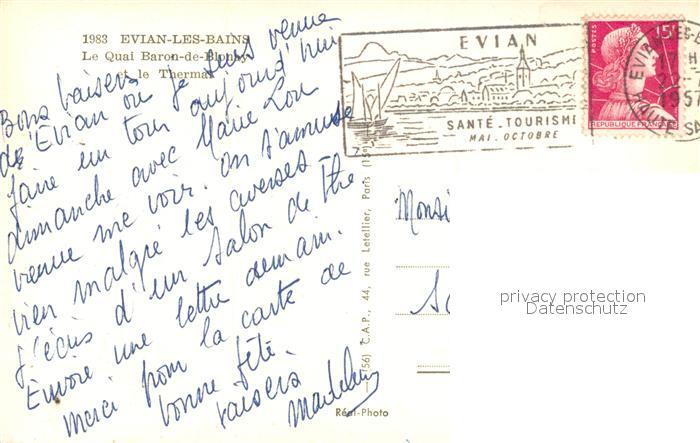 1983 EVIAN-LES-BAINS
Le Quai Baron-de-Blonay
et le Thermal
Bons baisers
de Evian où je suis venue
faire un tour aujourd'hui
dimanche avec Marie Lou
venue me voir. on s'amuse
bien malgré les averses -
J'écris d'un salon de thé
Envoie une lettre demain.
merci pour la carte de
bonne fête.
baisers
(56) C.A.P., 44, rue Letellier, Paris (15e)
Réel-Photo
EVIAN
SANTÉ-TOURISME
MAI. OCTOBRE
POSTES
15F
REPUBLIQUE FRANÇAISE
1957
Monsi
privacy protection
Datenschutz